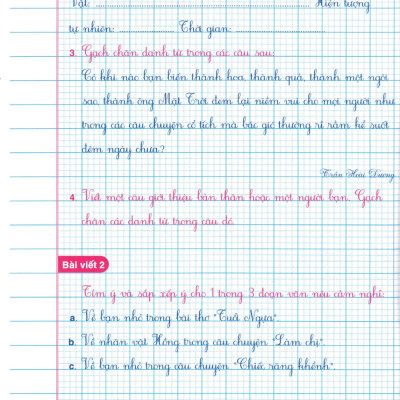 vật: ........................ Hiện tượng
tự nhiên: ........................ Thời gian: ........................
3. Gạch chân danh từ trong các câu sau:
Có khi nào bạn biến thành hoa, thành quả, thành một ngôi
sao, thành ông Mặt Trời đem lại niềm vui cho mọi người như
trong các câu chuyện cổ tích mà bác gió thường rì rầm kể suốt
đêm ngày chưa?
Trần Hoài Dương
4. Viết một câu giới thiệu bản thân hoặc một người bạn. Gạch
chân các danh từ trong câu đó.
Bài viết 2
Tìm ý và sắp xếp ý cho 1 trong 3 đoạn văn nêu cảm nghĩ:
a. Về bạn nhỏ trong bài thơ "Tuổi Ngựa".
b. Về nhân vật Hồng trong câu chuyện "Làm chị".
c. Về bạn nhỏ trong câu chuyện "Chiếc răng khểnh".